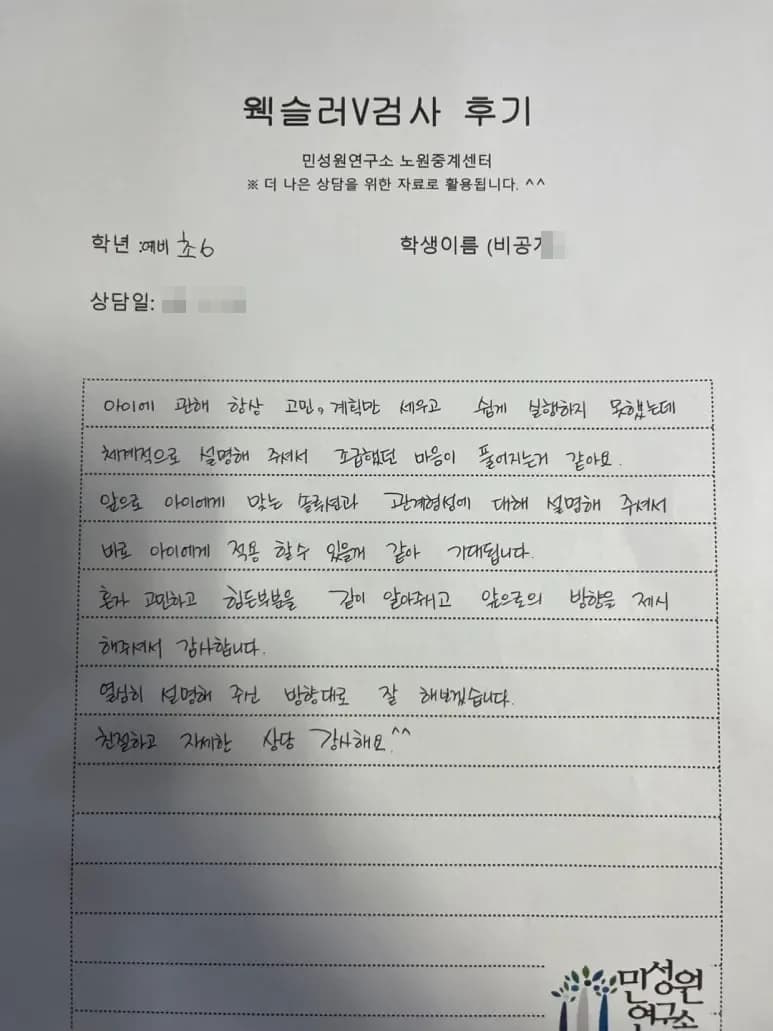 웩슬러V검사 후기
민성원연구소 노원중계센터
※ 더 나은 상담을 위한 자료로 활용됩니다. ^^
학년 :예비 초6
학생이름 (비공개
상담일:
아이에 관해 항상 고민, 계획만 세우고 쉽게 실행하지 못했는데
체계적으로 설명해 주셔서 조급했던 마음이 풀어지는거 같아요.
앞으로 아이에게 맞는 솔루션과 관계형성에 대해 설명해 주셔서
바로 아이에게 적용 할수 있을거 같아 기대됩니다.
혼자 고민하고 힘든부분을 같이 알아주시고 앞으로의 방향을 제시
해주셔서 감사합니다.
열심히 설명해 주신 방향대로 잘 해보겠습니다.
친절하고 자세한 상담 감사해요^^
민성원
연구소